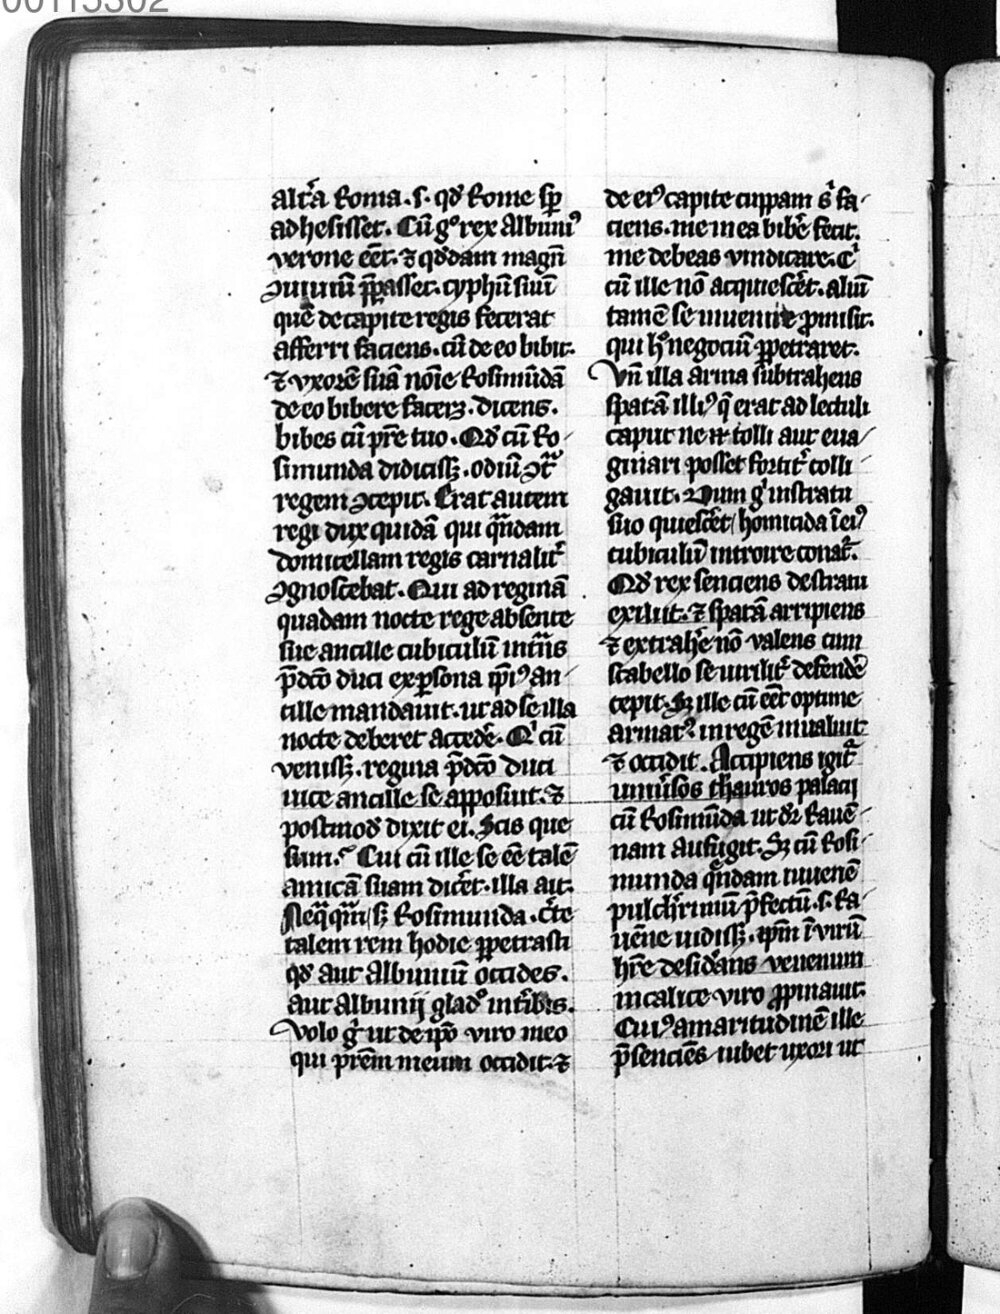 00115302
altĩa Roma. s. qď Rome sp̄
adhesisset. Cū gͦ rex Albuniꝰ
verone eēt. ⁊ qďdam magnū
ↄuiuiū p̄passet. cyphū suū
quē de capite regis fecerat
afferri faciens. cū de eo bibit.
⁊ vxorē suā noīe Rosimūdā
de eo bibere facerꝫ. dicens.
bibes cū pr̄e tuo. Qď cū Ro
simunda didicissꝫ. odiū ↄt̄
regem ↄcepit. Erat autem
regi dux quidā qui qn̄dam
domicellam regis carnalit̾
ↄgnoscebat. Qui ad reginā
quadam nocte rege absente
sue ancille cubiculū int̾ns
p̄dc̄o duci ex ꝑsona ip̄iꝰ an
cille mandauit. ut ad se illa
nocte deberet accede̾. Qi cū
venissꝫ. regina p̄dc̄o duci
uice ancille se apposuit. ⁊
postmoď dixit ei. Scis que
sum. Cui cū ille se eē talē
amicā suam dic̾et. illa ait.
Neq̄q̄m sꝫ Rosimunda. c̾te
talem rem hodie ꝑpetrasti
qď aut Albuniū occides.
aut Albunij gladͦ int̾ibis.
Volo gͥ ut de ip̄o viro meo
qui pr̄em meum occidit. ⁊
de eiꝰ capite cuppam sͥ fa
ciens. me in ea bibe̾ fecit.
me debeas vindicare. Cͥ
cū ille nō acquiesc̾et. aliū
tamē se inuenire ꝓmisit.
qui hͦ negociū ꝑpetraret.
Vn̄ illa arma subtrahens
spatā illiꝰ q̄ erat ad lectuli
caput ne tolli aut eua
ginari posset fortit̾ colli
gauit. Dum gͥ in stratu
suo quiesc̾et homicida ī eiꝰ
cubiculū introire conat̾.
Qď rex senciens de stratu
exiliit. ⁊ spatā arripiens
⁊ extrahe̾ nō valens cum
scabello se uirilit̾ defende̾
cepit. Sꝫ ille cū eēt optime
armatꝰ in regē inualuit
⁊ occidit. Accipiens igit̾
uniu̾sos thauros palacij
cū Rosimūda ut dr̄ Rauē
nam aufugit. Sꝫ cū Rosi
munda qn̄dam iuuenē
pulch̾rimū p̄fectū. s. Ra
uēne uidissꝫ. ip̄m ī virū
hr̄e desid̾ans venenum
in calice viro ꝓpinauit.
Cuiꝰ amaritudinē ille
p̄senciēs iubet uxori ut